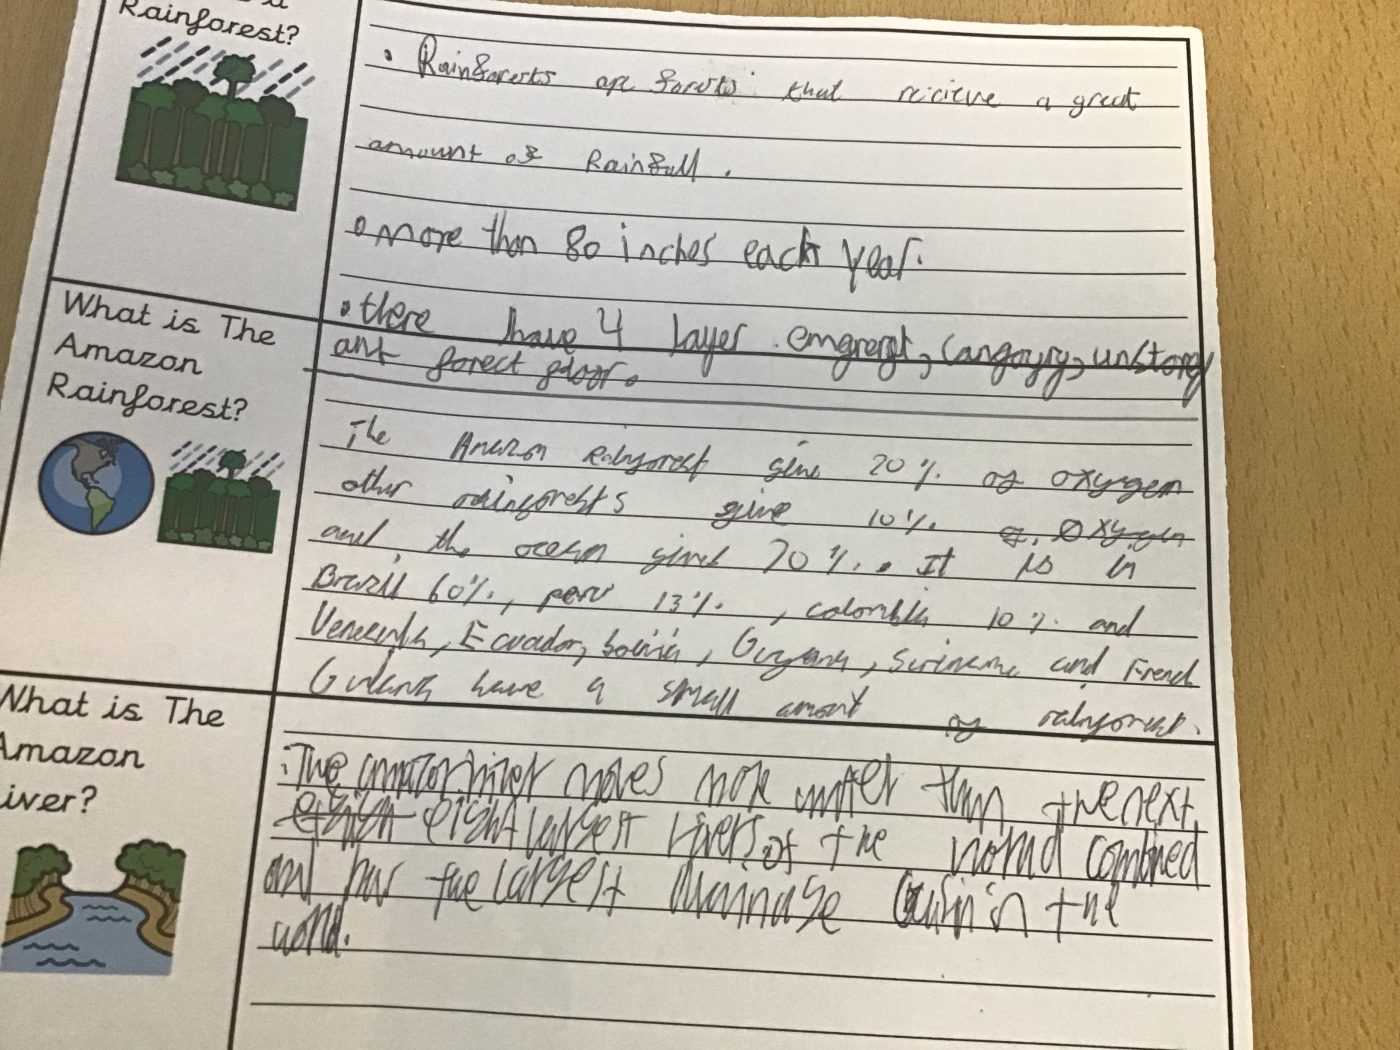 Rainforest?
• Rainforests are forests that recieve a great
amount of Rainfall.
• more than 80 inches each year.
• there have 4 layer emgrergt, cangoyry, unstorey
ant forect gloor.
What is The
Amazon
Rainforest?
The Amazon Rainforest give 20% of oxygen
other rainforests give 10% of oxygen
and the ocean gives 70%. It is in
Brazil 60%, peru 13%, colombia 10% and
Ecuador, Guyana, Suriname and French
have a small amont of rainforest.
What is The
Amazon
iver?
The amazon river moves more watter than the next
eight largest rivers of the world combined
and has the largest in the
world.